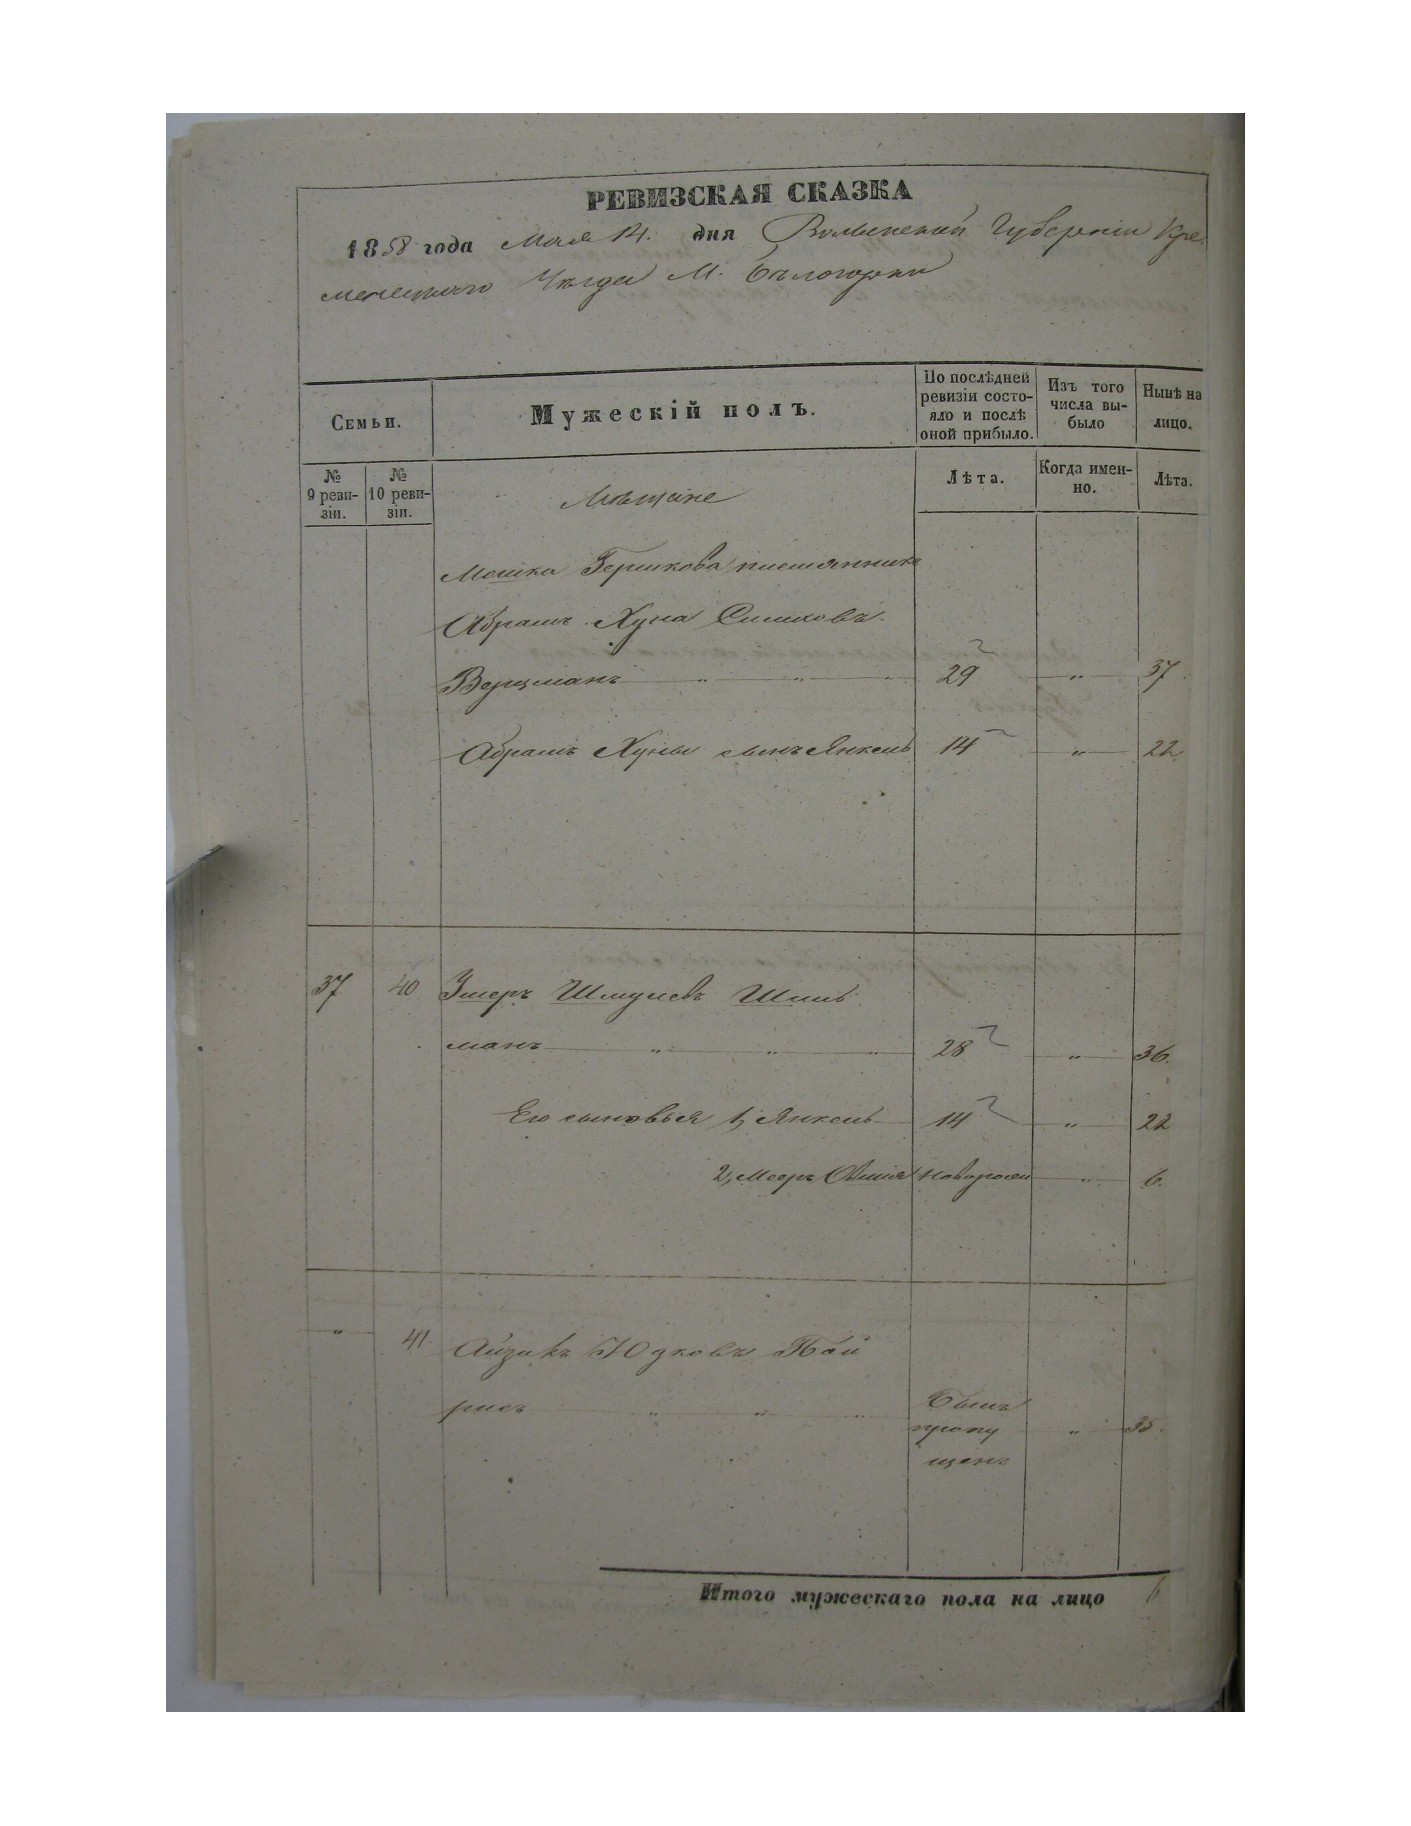 РЕВИЗСКАЯ СКАЗКА
1858 года Мая 14. дня Волынской Губерніи Кре-
менецкаго Уѣзда М. Бѣлогорки
Семьи.
Мужескій полъ.
По послѣдней ревизіи состояло и послѣ оной прибыло.
Изъ того числа выбыло
Нынѣ на лицо.
№ 9 ревизіи.
№ 10 ревизіи.
Лѣта.
Когда именно.
Лѣта.
Мѣщане
Мошка Гершкова племянника
Абрамъ Хуна Симховъ
29 " 37.
Абрамъ Хуны сынъ Янкель 14 " 22
37 40 Умеръ Шмулевъ
манъ " " " 28 " 36.
Его сыновья 1, Янкель 14 " 22
2, Мееръ новорожн " 6.
" 41. Айзикъ Юдковъ
" " " Былъ пропущенъ " 35.
Итого мужескаго пола на лицо 6